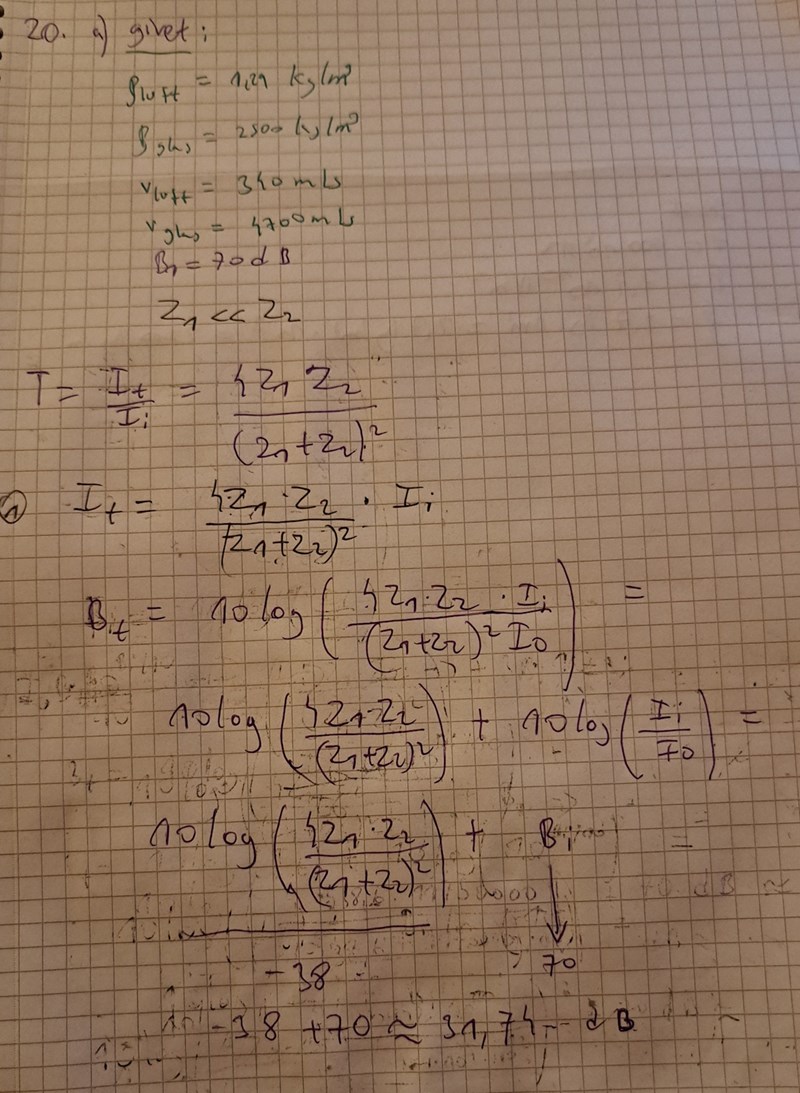 20. a) givet:
ρluft = 1,29 kg/m³
ρglas = 2500 kg/m³
vluft = 340 m/s
vglas = 4700 m/s
B₁ = 70 dB
Z₁ << Z₂
T = It/Ii = 4Z₁ Z₂/(Z₁+Z₂)²
① It = 4Z₁·Z₂/(Z₁+Z₂)² · Ii
Bt = 10 log(4Z₁·Z₂ · Ii/(Z₁+Z₂)² I₀) =
10 log(4Z₁·Z₂/(Z₁+Z₂)²) + 10 log(Ii/I₀) =
10 log(4Z₁·Z₂/(Z₁+Z₂)²) + Bi =
-38 70
-38 + 70 ≈ 31,74 dB